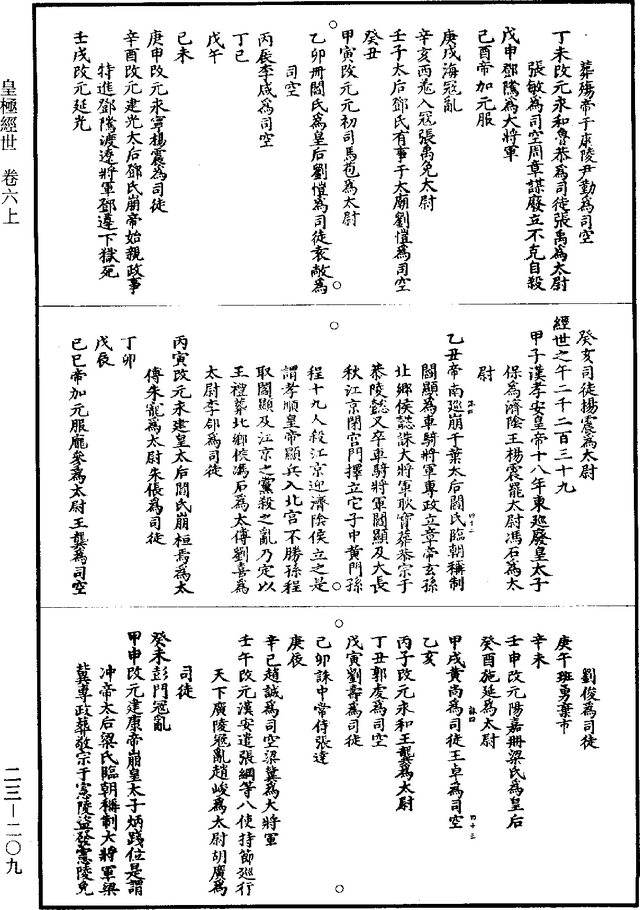 葬殤帝于康陵尹勤為司空
丁未改元永和魯恭為司徒張禹為太尉
張敏為司空周章謀廢立不克自殺
戊申鄧隲為大將軍
己酉帝加元服
庚戌海寇亂
辛亥西羌入寇張禹免太尉
壬子太后鄧氏有事于太廟劉愷為司空
癸丑
甲寅改元元初司馬苞為太尉
乙卯冊閻氏為皇后劉愷為司徒袁敞為
司空
丙辰李咸為司空
丁巳
戊午
己未
庚申改元永寧楊震為司徒
辛酉改元建光太后鄧氏崩帝始親政事
特進鄧隲渡遼將軍鄧遵下獄死
壬戌改元延光
癸亥司徒楊震為太尉
經世之午二千二百三十九
甲子漢孝安皇帝十八年東巡廢皇太子
保為濟陰王楊震罷太尉馮石為太
尉
乙丑帝南巡崩于葉太后閻氏臨朝稱制
閻顯為車騎將軍專政立章帝玄孫
北鄉侯懿誅大將軍耿寶葬恭宗于
恭陵懿又卒車騎將軍閻顯及大長
秋江京閉宮門擇立它子中黃門孫
程十九人殺江京迎濟陰侯立之是
謂孝順皇帝顯兵入北宮不勝孫程
取閻顯及江京之黨殺之亂乃定以
王禮葬北鄉侯馮石為太傅劉喜為
太尉李郃為司徒
丙寅改元永建皇太后閻氏崩桓焉為太
傅朱寵為太尉朱倀為司徒
丁卯
戊辰
己巳帝加元服龐參為太尉王龔為司空
劉俊為司徒
庚午班勇棄市
辛未
壬申改元陽嘉冊梁氏為皇后
癸酉施延為太尉
甲戌黃尚為司徒王卓為司空
乙亥
丙子改元永和王龔為太尉
丁丑郭虔為司空
戊寅劉壽為司徒
己卯誅中常侍張逵
庚辰
辛巳趙誠為司空梁冀為大將軍
壬午改元漢安遣張綱等八使持節巡行
天下廣陵寇亂趙峻為太尉胡廣為
司徒
癸未彭門寇亂
甲申改元建康帝崩皇太子炳踐位是謂
冲帝太后梁氏臨朝稱制大將軍梁
冀專政葬敬宗于憲陵盜發憲陵免
皇極經世 卷六上
二三—二〇九